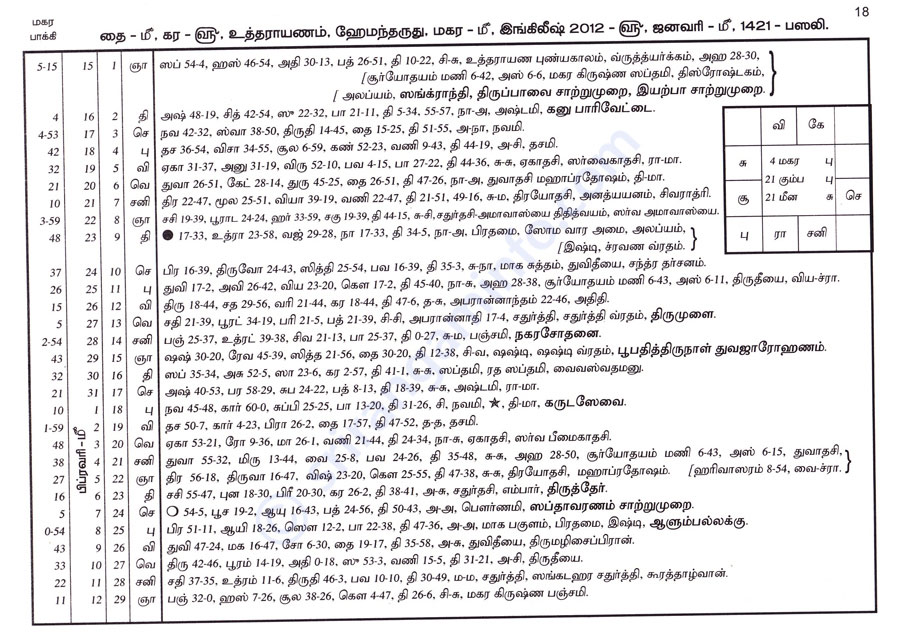 18
மகர
பாக்கி
தை - மீ, கர - ௵, உத்தராயணம், ஹேமந்தருது, மகர - மீ, இங்கிலீஷ் 2012 - ௵, ஜனவரி - மீ, 1421 - பஸலி.
5-15 15 1 ஞா ஸப் 54-4, ஹஸ் 46-54, அதி 30-13, பத் 26-51, தி 10-22, சி-சு, உத்தராயண புண்யகாலம், வ்ருத்த்யர்க்கம், அஹ 28-30,
[சூர்யோதயம் மணி 6-42, அஸ் 6-6, மகர கிருஷ்ண ஸப்தமி, திஸ்ரோஷ்டகம்,
[அலப்யம், ஸங்க்ராந்தி, திருப்பாவை சாற்றுமுறை, இயற்பா சாற்றுமுறை.
4 16 2 தி அஷ் 48-19, சித் 42-54, ஸு 22-32, பா 21-11, தி 5-34, 55-57, நா-அ, அஷ்டமி, கனு பாரிவேட்டை.
4-53 17 3 செ நவ 42-32, ஸ்வா 38-50, திருதி 14-45, தை 15-25, தி 51-55, அ-நா, நவமி.
42 18 4 பு தச 36-54, விசா 34-55, சூல 6-59, கண் 52-23, வணி 9-43, தி 44-19, அ-சி, தசமி.
32 19 5 வி ஏகா 31-37, அனு 31-19, விரு 52-10, பவ 4-15, பா 27-22, தி 44-36, சு-சு, ஏகாதசி, ஸர்வைகாதசி, ரா-மா.
21 20 6 வெ துவா 26-51, கேட் 28-14, துரு 45-25, தை 26-51, தி 47-26, நா-அ, துவாதசி மஹாப்ரதோஷம், தி-மா.
10 21 7 சனி திர 22-47, மூல 25-51, வியா 39-19, வணி 22-47, தி 21-51, 49-16, சு-ம, திரயோதசி, அனத்யயனம், சிவராத்ரி.
3-59 22 8 ஞா சசி 19-39, பூராட 24-24, ஹர் 33-59, சகு 19-39, தி 44-15, சு-சி, சதுர்தசி-அமாவாஸ்யை திதித்வயம், ஸர்வ அமாவாஸ்யை.
48 23 9 தி ● 17-33, உத்ரா 23-58, வஜ் 29-28, நா 17-33, தி 34-5, நா-அ, பிரதமை, ஸோம வார அமை, அலப்யம்,
[இஷ்டி, ச்ரவண வ்ரதம்.
வி கே
சு 4 மகர பு
21 கும்ப பு
சூ 21 மீன சு செ
பு ரா சனி
37 24 10 செ பிர 16-39, திருவோ 24-43, ஸித்தி 25-54, பவ 16-39, தி 35-3, சு-நா, மாக சுத்தம், துவிதீயை, சந்த்ர தர்சனம்.
26 25 11 பு துவி 17-2, அவி 26-42, விய 23-20, கௌ 17-2, தி 45-40, நா-சு, அஹ 28-38, சூர்யோதயம் மணி 6-43, அஸ் 6-11, திருதீயை, விய-ச்ரா.
15 26 12 வி திரு 18-44, சத 29-56, வரி 21-44, கர 18-44, தி 47-6, த-சு, அபரான்னாந்தம் 22-46, அதிதி.
5 27 13 வெ சதி 21-39, பூரட் 34-19, பரி 21-5, பத் 21-39, சி-சி, அபரான்னாதி 17-4, சதுர்த்தி, சதுர்த்தி வ்ரதம், திருமுளை.
2-54 28 14 சனி பஞ் 25-37, உத்ரட் 39-38, சிவ 21-13, பா 25-37, தி 0-27, சு-ம, பஞ்சமி, நகரசோதனை.
43 29 15 ஞா ஷஷ் 30-20, ரேவ 45-39, ஸித்த 21-56, தை 30-20, தி 12-38, சி-வ, ஷஷ்டி, ஷஷ்டி வ்ரதம், பூபதித்திருநாள் துவஜாரோஹணம்.
32 30 16 தி ஸப் 35-34, அசு 52-5, ஸா 23-6, கர 2-57, தி 41-1, சு-சு, ஸப்தமி, ரத ஸப்தமி, வைவஸ்வதமனு.
21 31 17 செ அஷ் 40-53, பர 58-29, சுப 24-22, பத் 8-13, தி 18-39, சு-சு, அஷ்டமி, ரா-மா.
பிப்ரவரி - மீ
10 1 18 பு நவ 45-48, கார் 60-0, சுப்பி 25-25, பா 13-20, தி 31-26, சி, நவமி, ★, தி-மா, கருடஸேவை.
1-59 2 19 வி தச 50-7, கார் 4-23, பிரா 26-2, தை 17-57, தி 47-52, த-த, தசமி.
48 3 20 வெ ஏகா 53-21, ரோ 9-36, மா 26-1, வணி 21-44, தி 24-34, நா-சு, ஏகாதசி, ஸர்வ பீமைகாதசி.
38 4 21 சனி துவா 55-32, மிரு 13-44, வை 25-8, பவ 24-26, தி 35-48, சு-சு, அஹ 28-50, சூர்யோதயம் மணி 6-43, அஸ் 6-15, துவாதசி,
27 5 22 ஞா திர 56-18, திருவா 16-47, விஷ் 23-20, கௌ 25-55, தி 47-38, சு-சு, திரயோதசி, மஹாப்ரதோஷம். [ஹரிவாஸரம் 8-54, வை-ச்ரா.
16 6 23 தி சசி 55-47, புன 18-30, பிரீ 20-30, கர 26-2, தி 38-41, அ-சு, சதுர்தசி, எம்பார், திருத்தேர்.
5 7 24 செ ○ 54-5, பூச 19-2, ஆயு 16-43, பத் 24-56, தி 50-43, அ-அ, பௌர்ணமி, ஸப்தாவரணம் சாற்றுமுறை.
0-54 8 25 பு பிர 51-11, ஆயி 18-26, ஸௌ 12-2, பா 22-38, தி 47-36, அ-அ, மாக பகுளம், பிரதமை, இஷ்டி, ஆளும்பல்லக்கு.
43 9 26 வி துவி 47-24, மக 16-47, சோ 6-30, தை 19-17, தி 35-58, அ-சு, துவிதீயை, திருமழிசைப்பிரான்.
33 10 27 வெ திரு 42-46, பூரம் 14-19, அதி 0-18, ஸு 53-3, வணி 15-5, தி 31-21, அ-சி, திருதீயை.
22 11 28 சனி சதி 37-35, உத்ரம் 11-6, திருதி 46-3, பவ 10-10, தி 30-49, ம-ம, சதுர்த்தி, ஸங்கடஹர சதுர்த்தி, கூரத்தாழ்வான்.
11 12 29 ஞா பஞ் 32-0, ஹஸ் 7-26, சூல 38-26, கௌ 4-47, தி 26-6, சி-சு, மகர கிருஷ்ண பஞ்சமி.